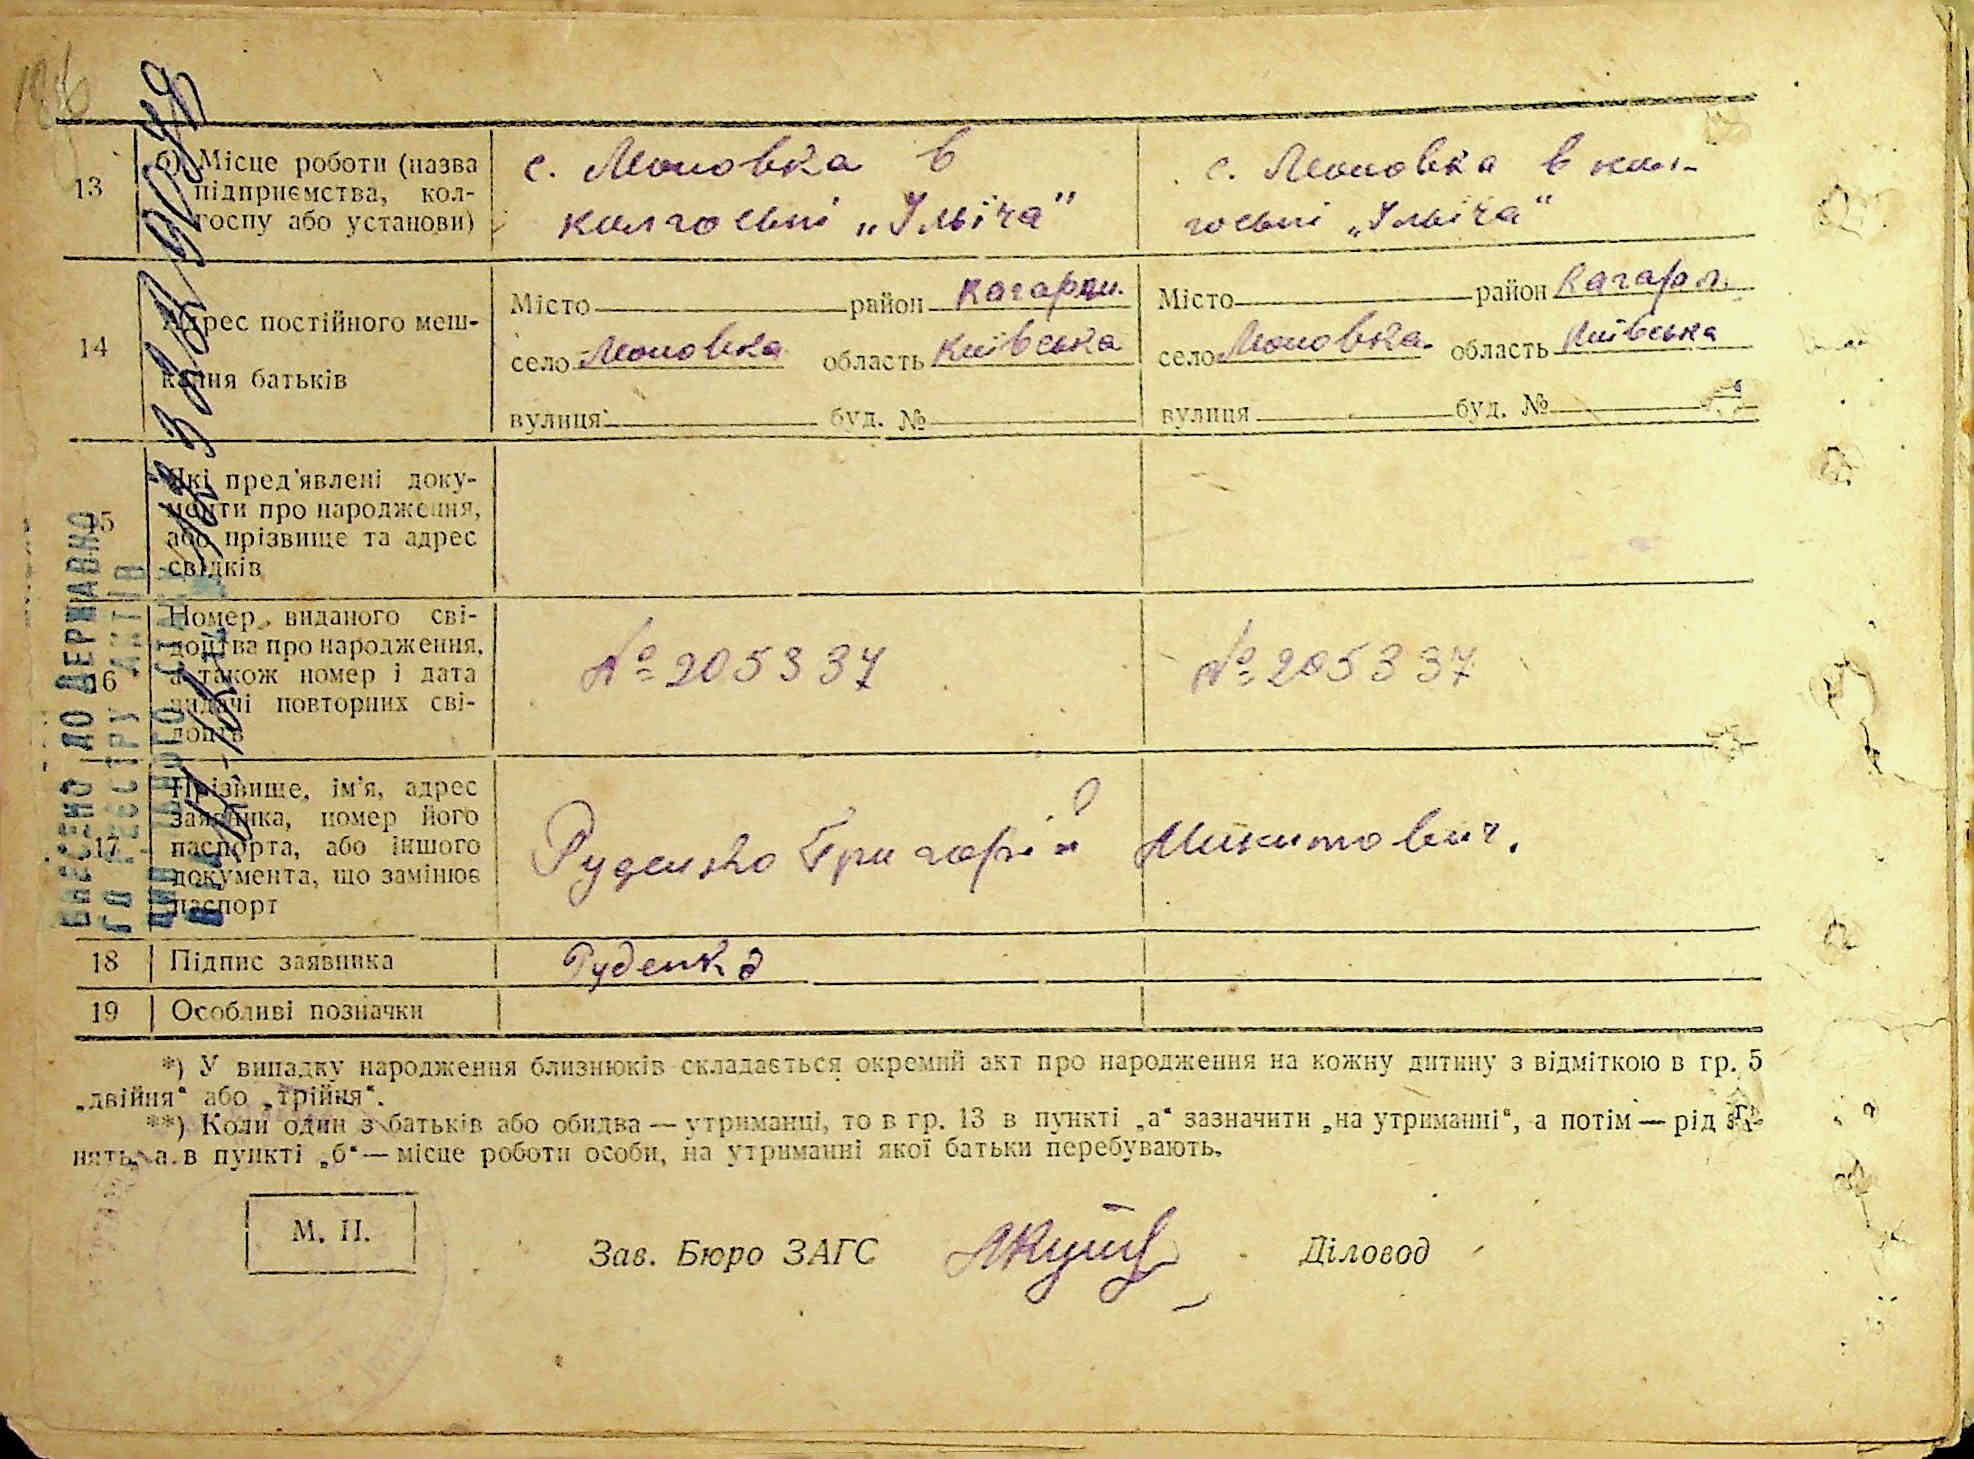 13
б) Місце роботи (назва
підприємства, кол-
госпу або установи)
с. Леоновка в
колгоспні „Ільіча"
с. Леоновка в кол-
госпні „Ільіча"
14
Адрес постійного меш-
кання батьків
Місто район Кагарли.
село Леоновка область Київська
вулиця буд. №
Місто район Кагарл.
село Леоновка область Київська
вулиця буд. №
15
Які пред'явлені доку-
менти про народження,
або прізвище та адрес
свідків
16
Номер виданого сві-
доцтва про народження,
а також номер і дата
видачі повторних сві-
доцтв
№ 205337
№ 205337
17
Прізвище, ім'я, адрес
заявника, номер його
паспорта, або іншого
документа, що замінює
паспорт
Руденко Григорій Микитович.
18
Підпис заявника
Руденко
19
Особливі позначки
*) У випадку народження близнюків складається окремий акт про народження на кожну дитину з відміткою в гр. 5
„двійня“ або „трійня“.
**) Коли один з батьків або обидва — утриманці, то в гр. 13 в пункті „а“ зазначити „на утриманні“, а потім — рід за-
нять, а в пункті „б“ — місце роботи особи, на утриманні якої батьки перебувають.
М. П.
Зав. Бюро ЗАГС
Діловод
ВНЕСЕНО ДО ДЕРЖАВНО
ГО РЕЄСТРУ АКТІВ
ЦИВІЛЬНОГО СТАНУ